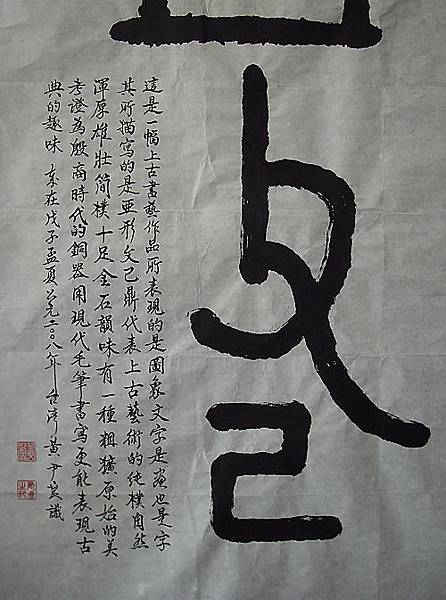 父
己
這是一幅上古書藝作品所表現的是圖象文字是畫也是字
其所描寫的是亞形父己鼎代表上古藝術的純樸自然
渾厚雄壯簡樸十足金石韻味有一種粗獷原始的美
考證為殷商時代的銅器用現代毛筆書寫更能表現古
典的趣味 歲在戊子孟夏公元二〇〇八年 黃尹識